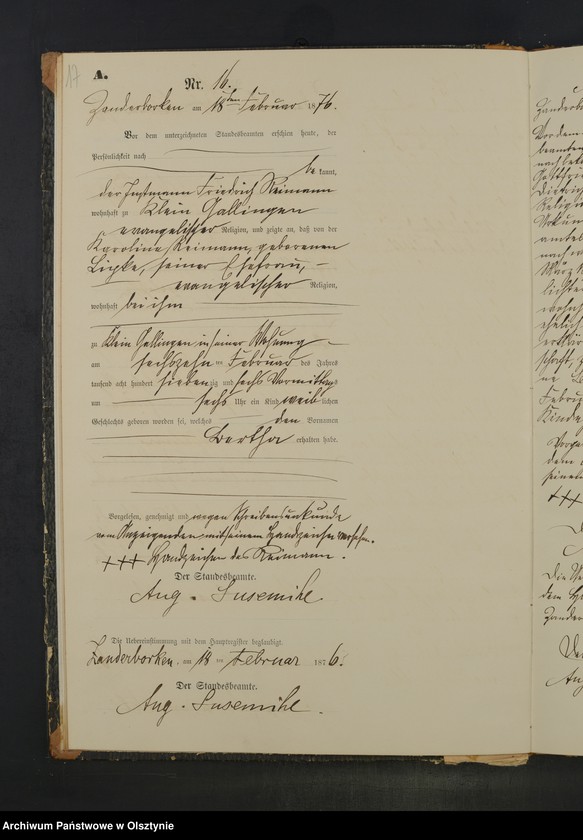 17
A.
Nr. 16.
Zanderborken am 18ten Februar 1876.
Vor dem unterzeichneten Standesbeamten erschien heute, der
Persönlichkeit nach
bekannt,
der Instmann Friedrich Reimann
wohnhaft zu Klein Gallingen
evangelischer Religion, und zeigte an, daß von der
Karoline Reimann, geborenen
Lipke, seiner Ehefrau,
evangelischer Religion,
wohnhaft bei ihm
zu Klein Gallingen in seiner Wohnung
am sechszehnten Februar des Jahres
tausend acht hundert siebenzig und sechs Vormittags
um sechs Uhr ein Kind weiblichen
Geschlechts geboren worden sei, welches den Vornamen
Bertha erhalten habe.
Vorgelesen, genehmigt und wegen Schreibensunkunde
vom Anzeigenden mit seinem Handzeichen versehen.
+++ Handzeichen des Reimann.
Der Standesbeamte.
Aug. Susemihl
Die Uebereinstimmung mit dem Hauptregister beglaubigt.
Zanderborken. am 18ten Februar 1876.
Der Standesbeamte.
Aug. Susemihl.
Archiwum Państwowe w Olsztynie